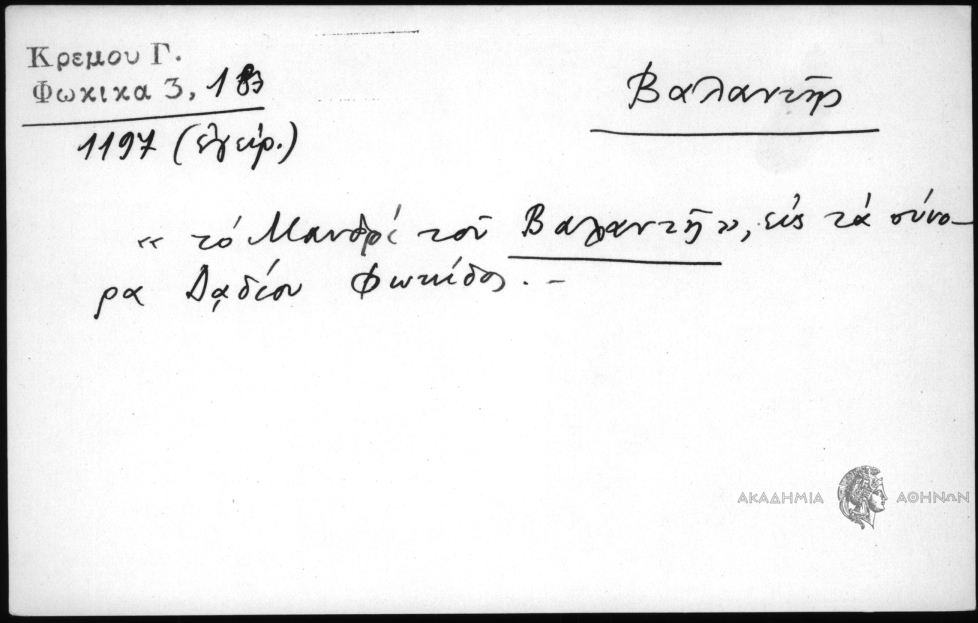 Κρεμου Γ.
Φωκικα 3, 183
Βαλαντῆς
1197 (ἐγχειρ.)
"τό Μανδρί τοῦ Βαλαντῆ", εἰς τά σύνο-
ρα Δαδίου Φωκίδος. -
ΑΚΑΔΗΜΙΑ ΑΘΗΝΩΝ